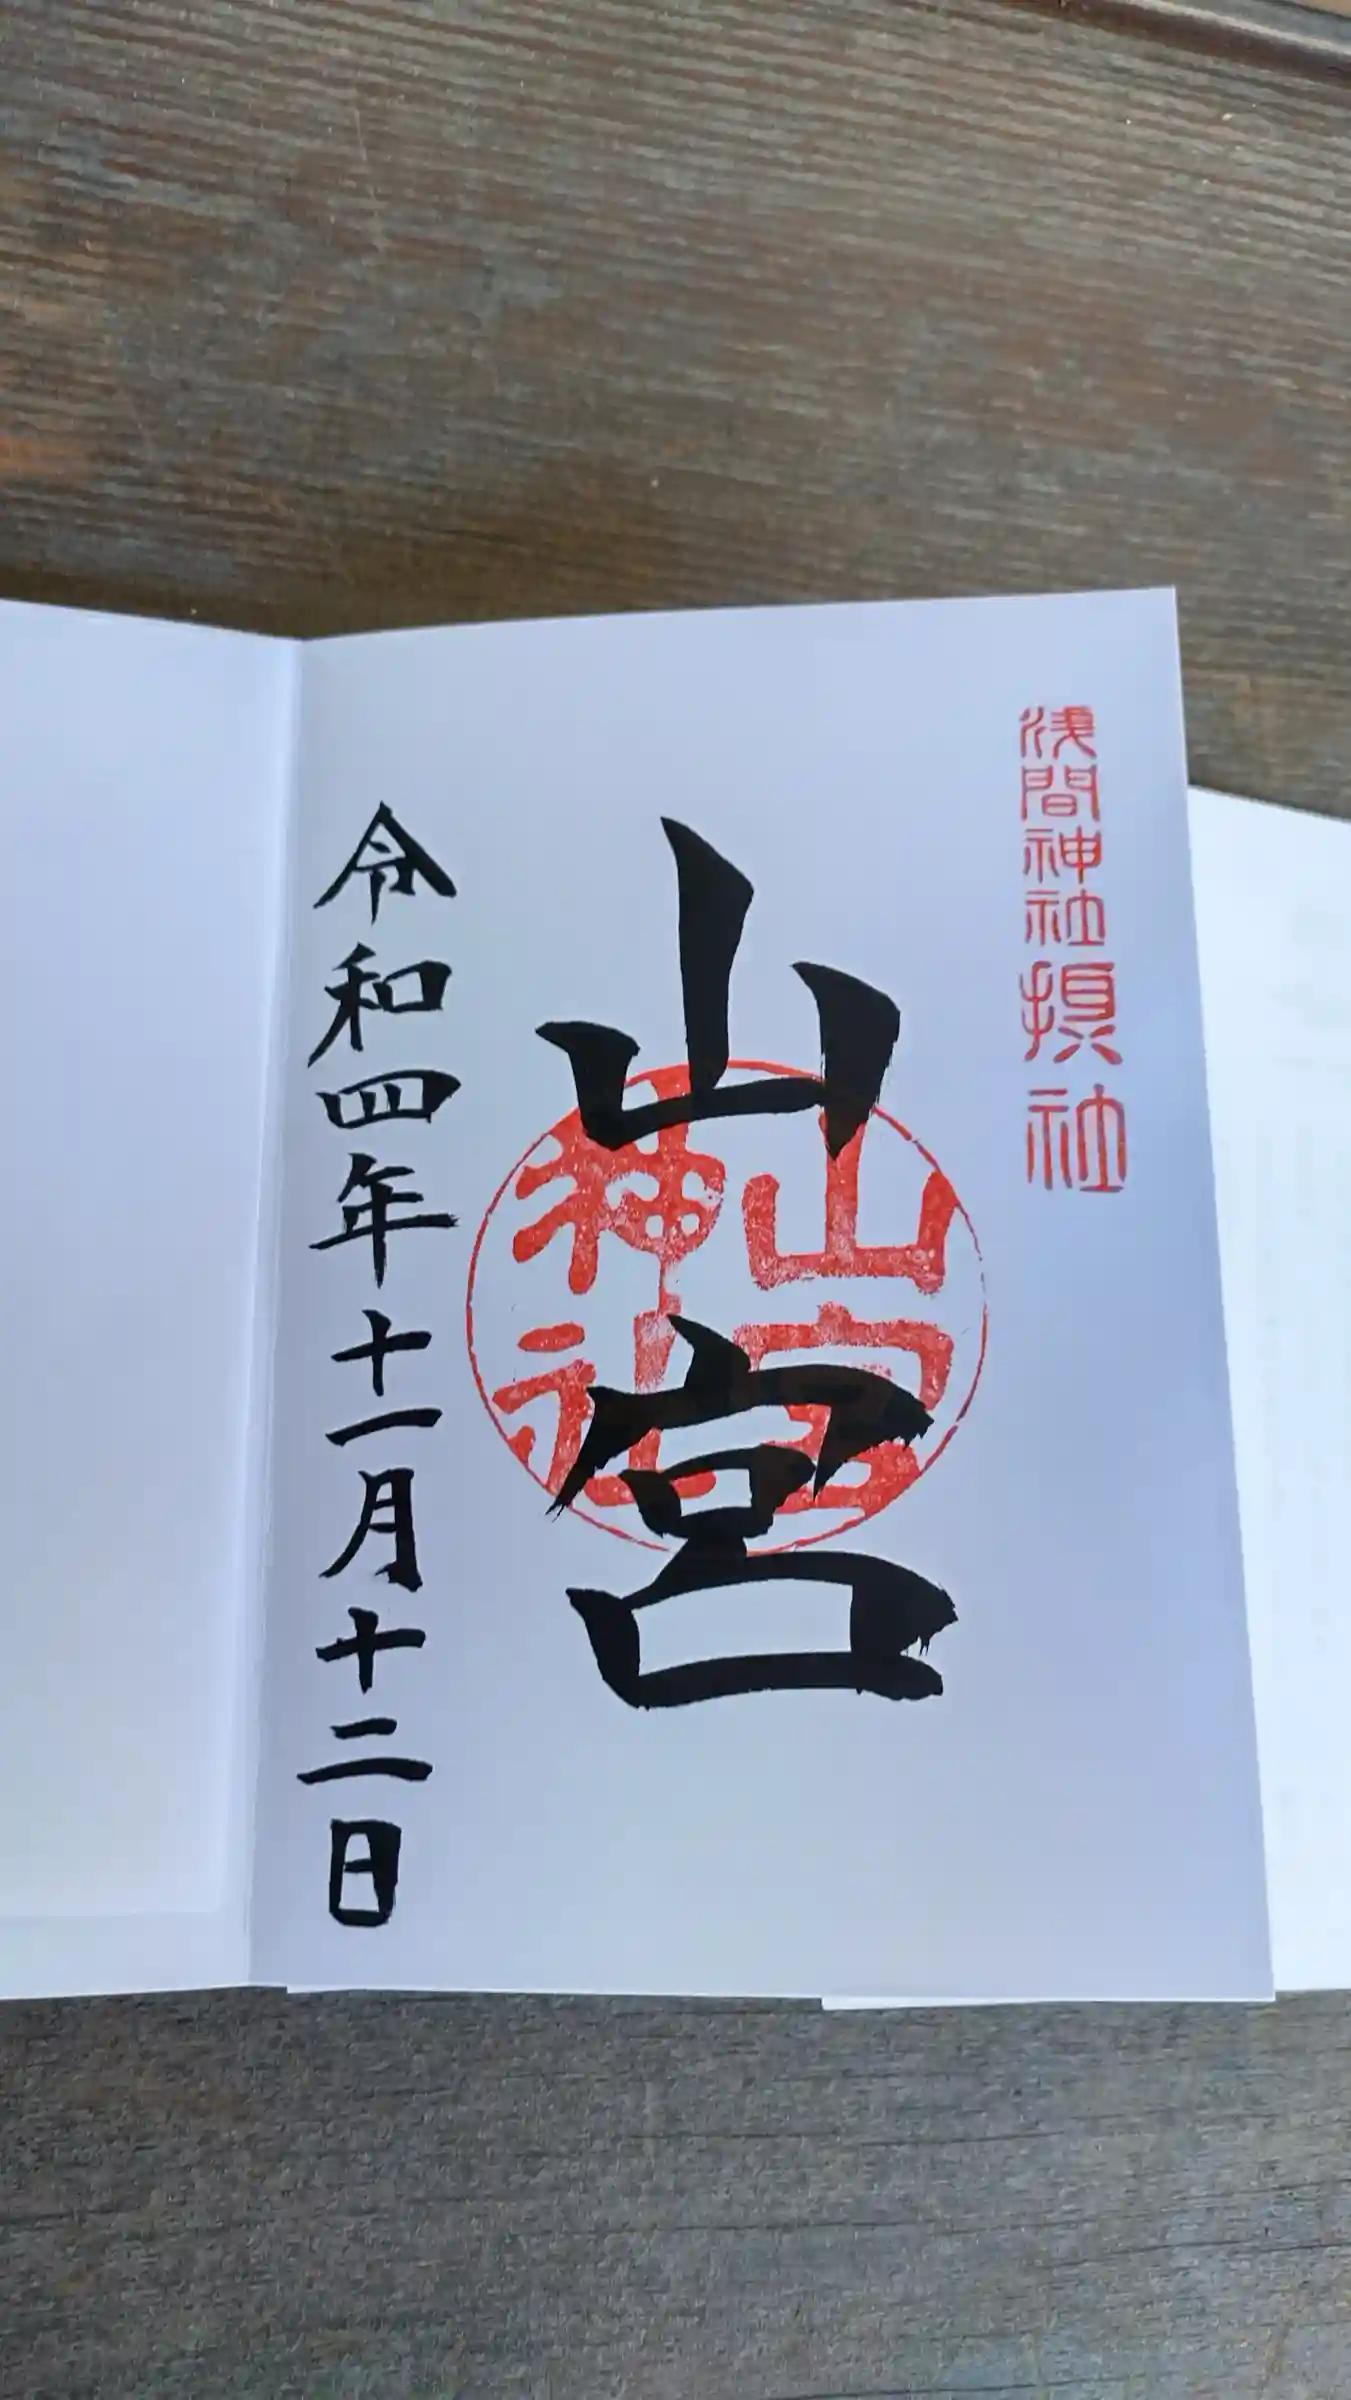 浅間神社摂社
山宮
山宮神社
令和四年十一月十二日